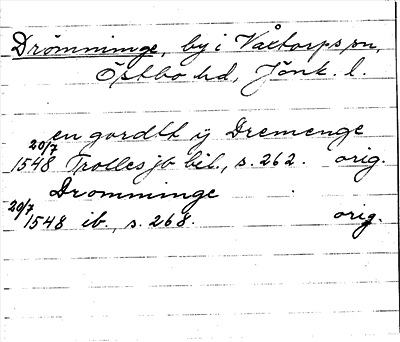 Drömminge, by i Våtorps sn,
Östbo hd, Jönk. l.
en gardtt ij Dremenge
20/7 1548 Trolles jb bil., s. 262. orig.
Dromminge
20/7 1548 ib., s. 268. orig.